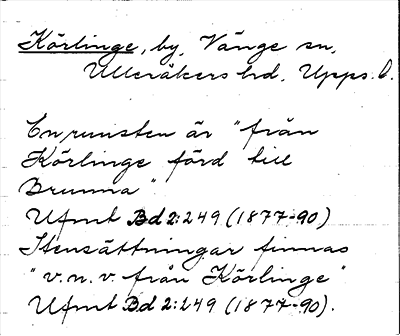 Körlinge, by, Vänge sn,
Ulleråkers hd, Upps. l.
En runsten är "från
Körlinge förd till
Brunna"
Ufmt Bd 2:249 (1877-90)
Stensättningar finnas
"v.n.v från Körlinge"
Ufmt Bd 2:249 (1877-90).